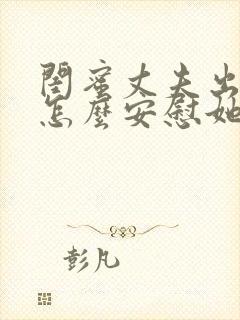 閨蜜丈夫出
怎麼安慰她
彭凡